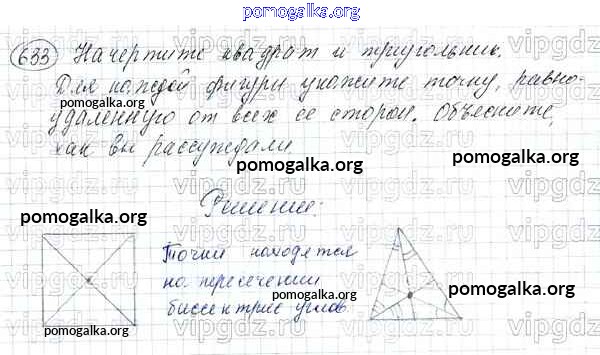 pomogalka.org
633 Начертите квадрат и треугольник.
Для каждой фигуры укажите точку, равно-
pomogalka.org pomogalka.org
удаленную от всех ее сторон. Объясните,
как Вы рассуждали
pomogalka.org
Решение:
pomogalka.org
Точки находятся
на пересечении
биссектрис углов
pomogalka.org
pomogalka.org
pomogalka.org
vipgdz.ru